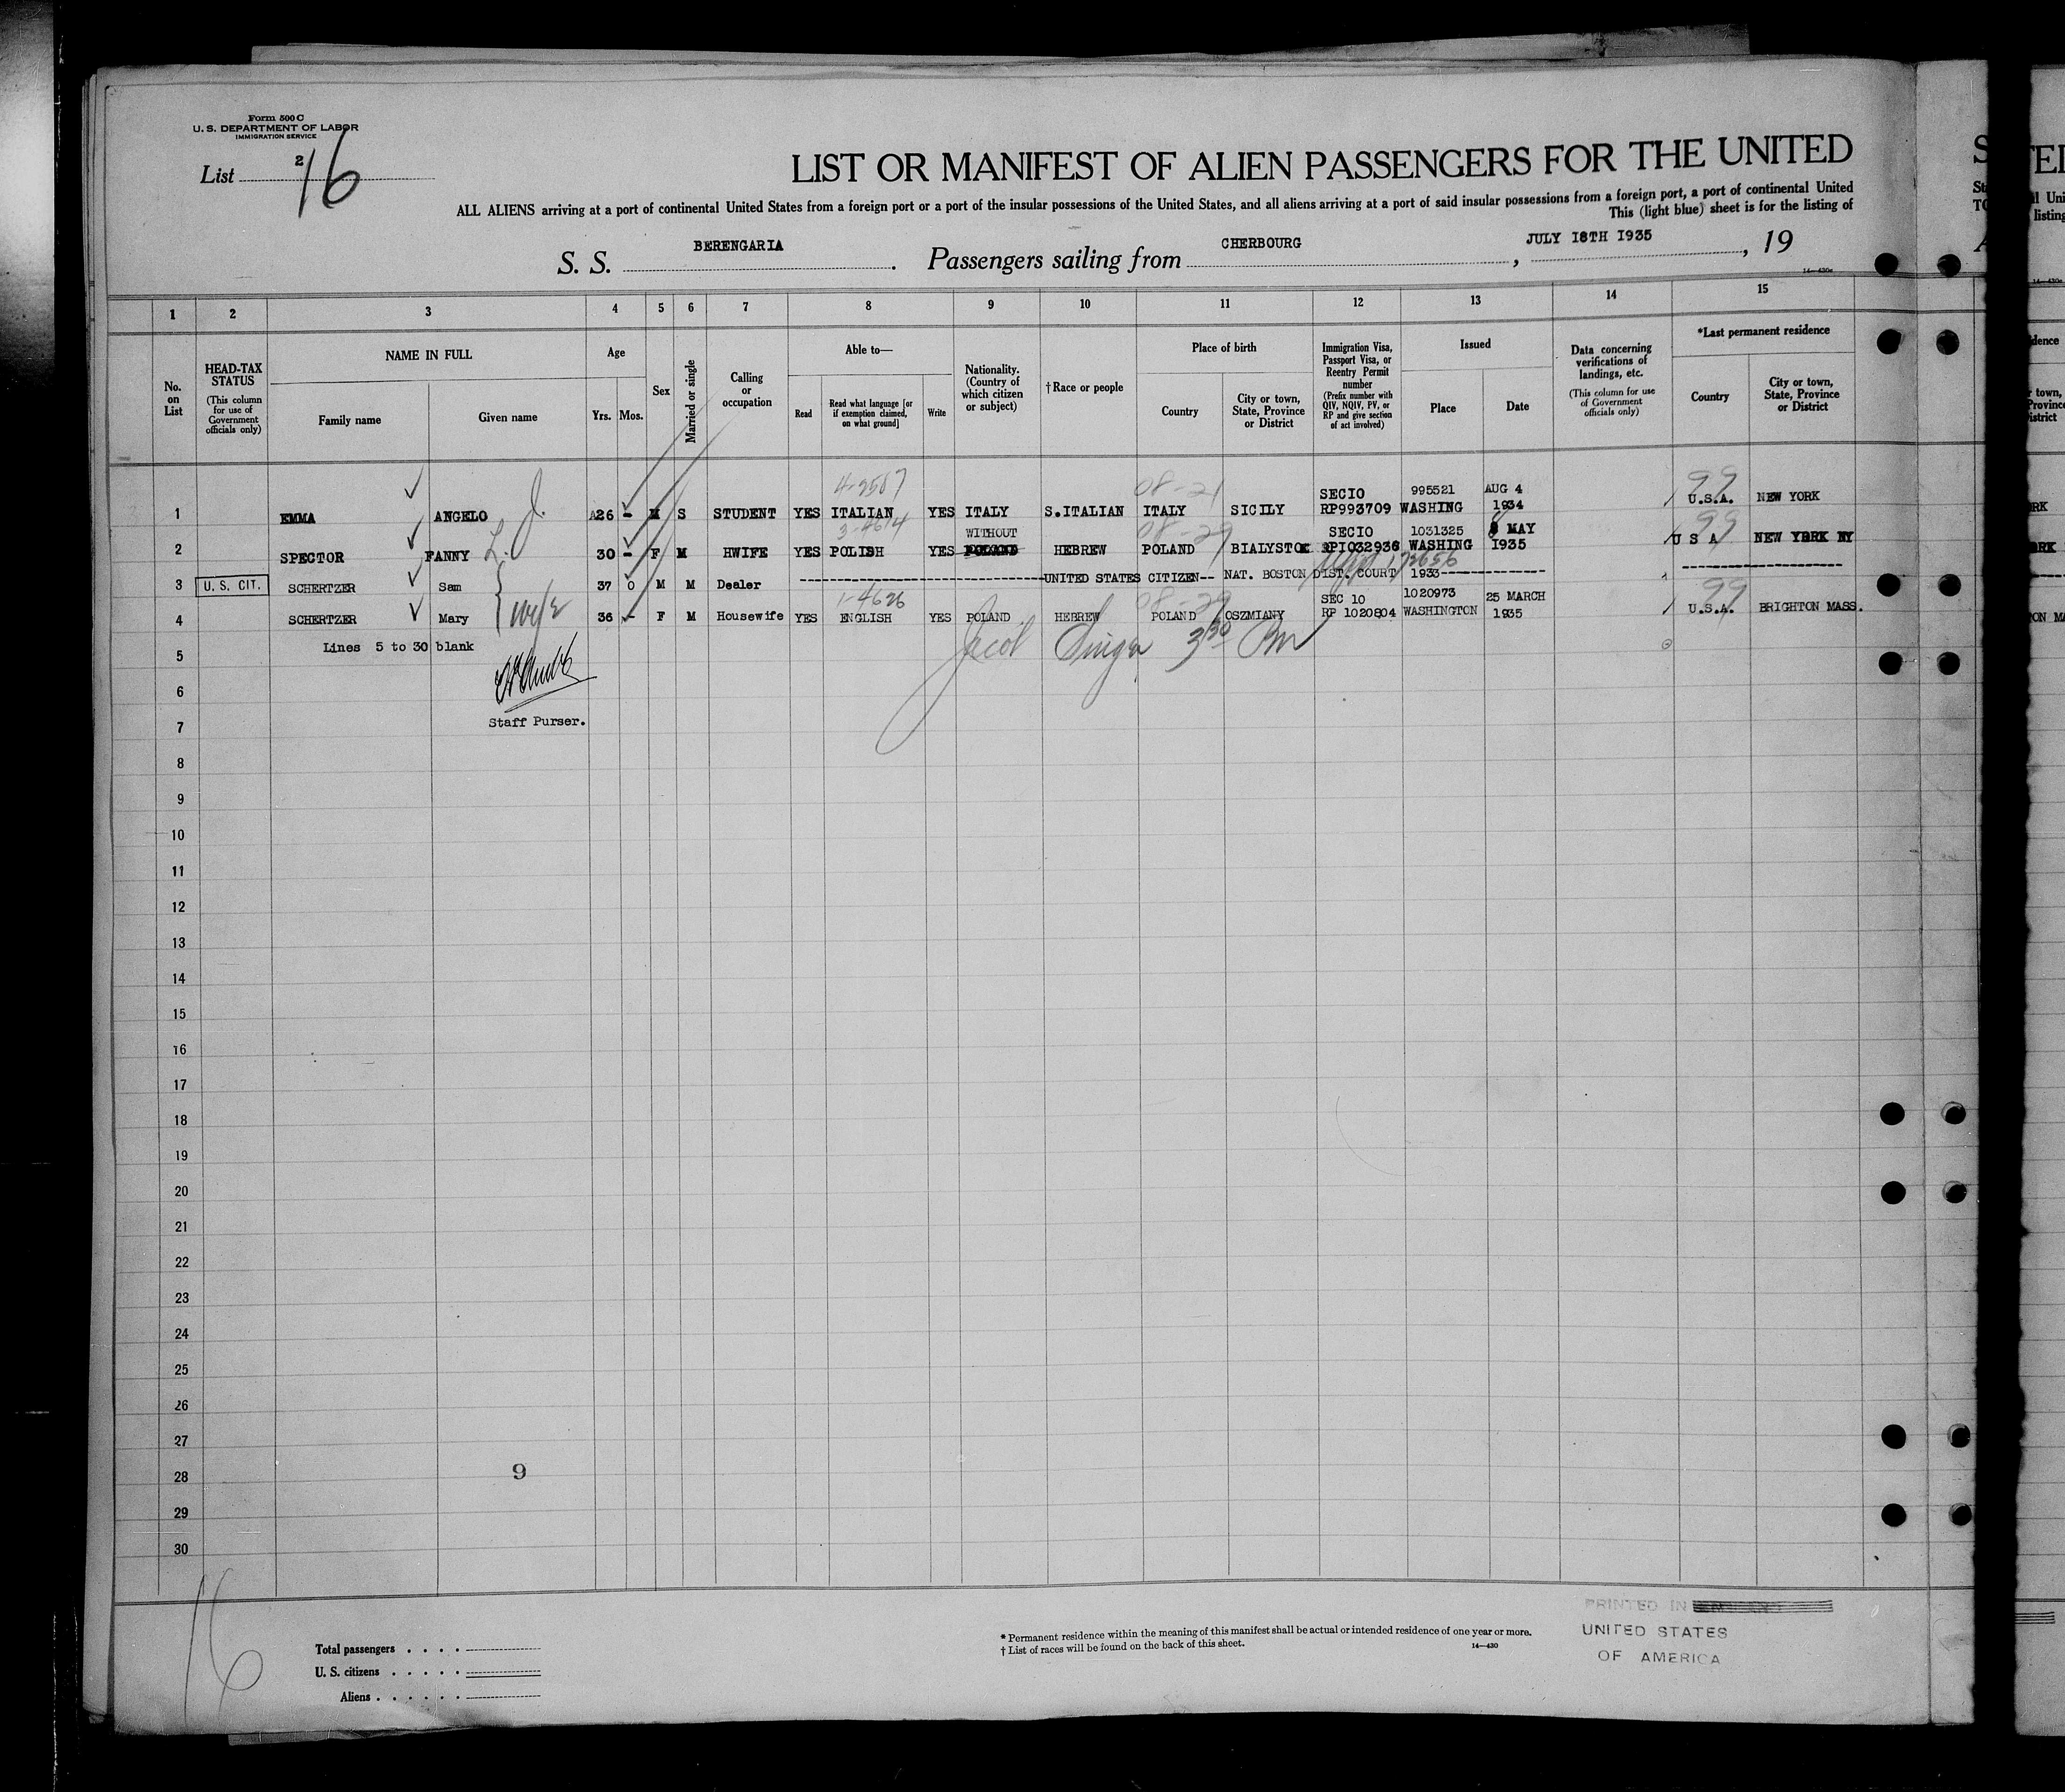 Form 500 C
U. S. DEPARTMENT OF LABOR
IMMIGRATION SERVICE
List 2 16
LIST OR MANIFEST OF ALIEN PASSENGERS FOR THE UNITED
ALL ALIENS arriving at a port of continental United States from a foreign port or a port of the insular possessions of the United States, and all aliens arriving at a port of said insular possessions from a foreign port, a port of continental United
This (light blue) sheet is for the listing of
S. S. BERENGARIA. Passengers sailing from CHERBOURG, JULY 18TH 1935, 19
14—430a
1 2 3 4 5 6 7 8 9 10 11 12 13 14 15
No. on List
HEAD-TAX STATUS
(This column for use of Government officials only)
NAME IN FULL
Family name
Given name
Age
Yrs. Mos.
Sex
Married or single
Calling or occupation
Able to—
Read
Read what language [or if exemption claimed, on what ground]
Write
Nationality. (Country of which citizen or subject)
†Race or people
Place of birth
Country
City or town, State, Province or District
Immigration Visa, Passport Visa, or Reentry Permit number
(Prefix number with QIV, NQIV, PV, or RP and give section of act involved)
Issued
Place
Date
Data concerning verifications of landings, etc.
(This column for use of Government officials only)
*Last permanent residence
Country
City or town, State, Province or District
4-9507 08-21 SECIO 995521 AUG 4 99
1 EMMA ANGELO J. 26 - M S STUDENT YES ITALIAN YES ITALY S.ITALIAN ITALY SICILY RP993709 WASHING 1934 U.S.A. NEW YORK
3-4614 WITHOUT 08-29 SECIO 1031325 8 MAY 99
2 SPECTOR FANNY L. 30 - F M HWIFE YES POLISH YES POLAND HEBREW POLAND BIALYSTOK RP1032936 WASHING 1935 U S A NEW YORK NY
3 U. S. CIT. SCHERTZER Sam 37 0 M M Dealer UNITED STATES CITIZEN-- NAT. BOSTON DIST. COURT 1933
1-4626 08-29 SEC 10 1020973 25 MARCH 99
4 SCHERTZER Mary wife 36 - F M Housewife YES ENGLISH YES POLAND HEBREW POLAND OSZMIANY RP 1020804 WASHINGTON 1935 U.S.A. BRIGHTON MASS.
Lines 5 to 30 blank
5 Jacob Singer 3 30 Pm
6
Staff Purser.
7
8
9
10
11
12
13
14
15
16
17
18
19
20
21
22
23
24
25
26
27
28 9
29
30
16
Total passengers . . . .
U. S. citizens . . . . .
Aliens . . . . . .
* Permanent residence within the meaning of this manifest shall be actual or intended residence of one year or more.
† List of races will be found on the back of this sheet.
14—430
PRINTED IN
UNITED STATES
OF AMERICA